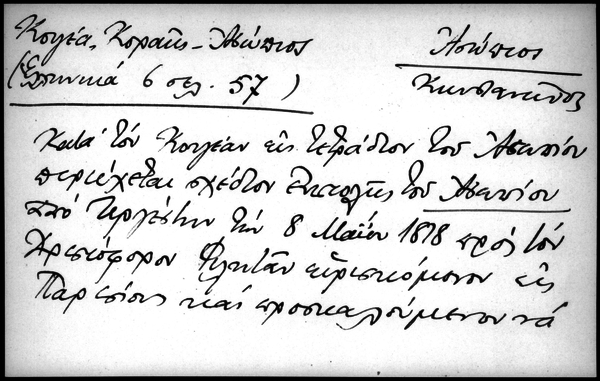 Κουγέα, Κοραῆς - Ἀσώπιος
Ἀσώπιος
(Ἑλληνικά 6 σελ. 57)
Κατά τόν Κουγέαν εἰς τετράδιον τοῦ Ἀσωπίου
περιέχεται σχέδιον ἐπιστολῆς τοῦ Ἀσωπίου
ἀπό Τεργέστην τήν 8 Μαΐου 1818 πρός τόν
Χρηστόφορον Φιλητᾶν εὑρισκόμενον εἰς
Παρισίους καί προσκαλούμενον νά